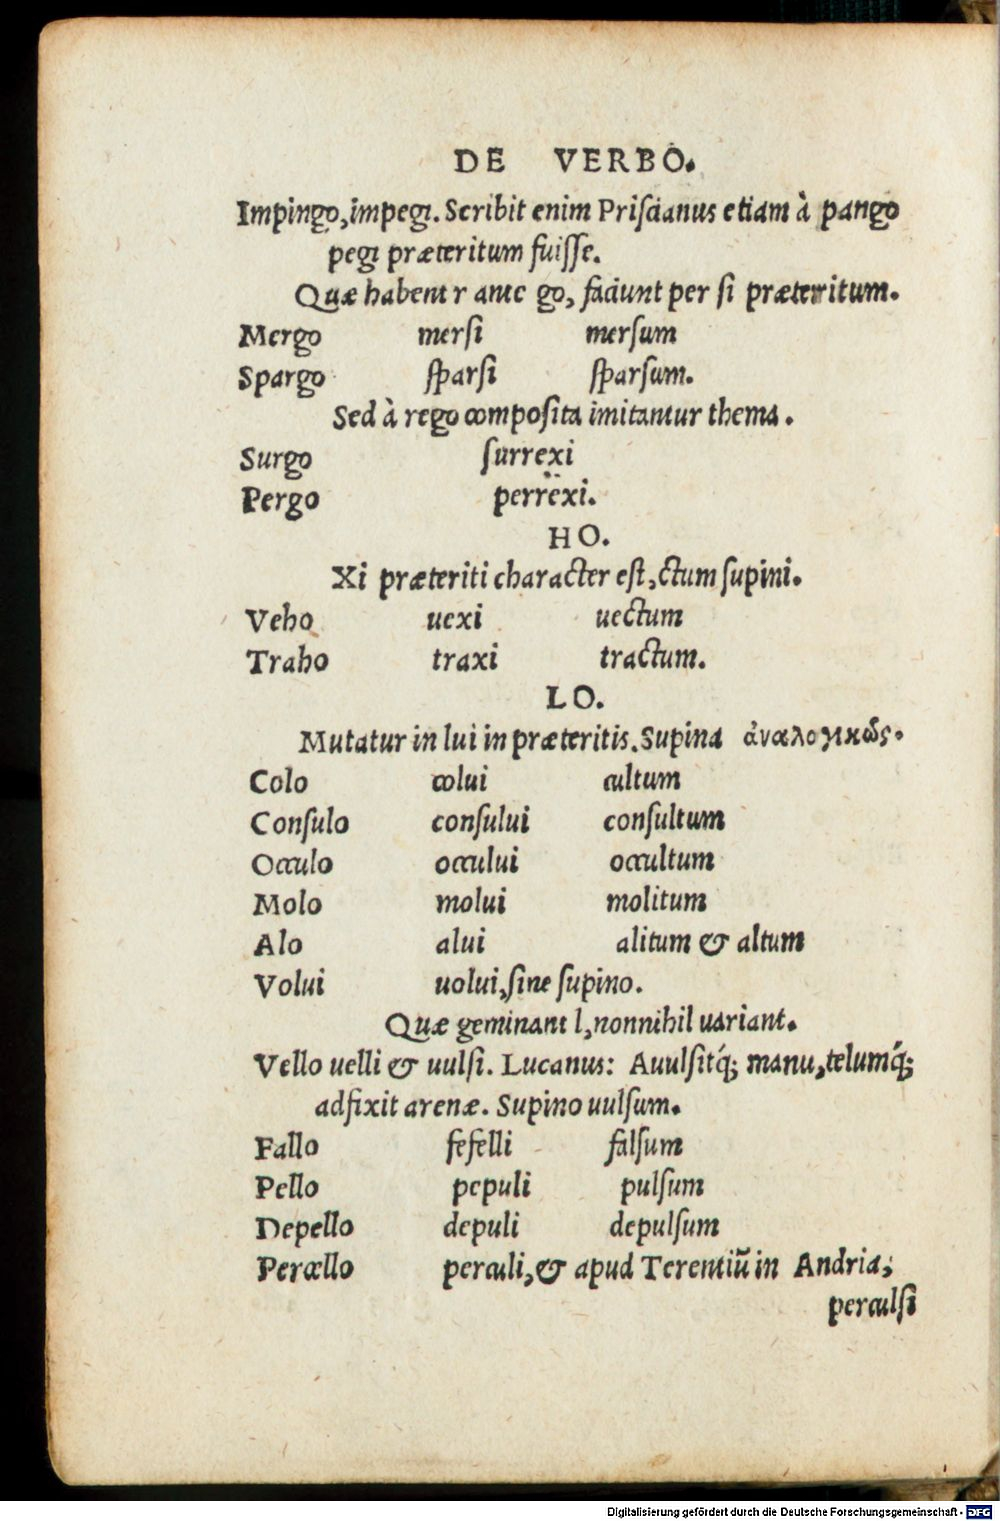 DE VERBO.
Impingo, impegi. Scribit enim Priſcianus etiam à pango
pegi præteritum fuiſſe.
Quæ habent r ante go, faciunt per ſi præteritum.
Mergo merſi merſum
Spargo ſparſi ſparſum.
Sed à rego compoſita imitantur thema.
Surgo ſurrexi
Pergo perrexi.
HO.
Xi præteriti character eſt, ctum ſupini.
Veho uexi uectum
Traho traxi tractum.
LO.
Mutatur in lui in præteritis. Supina ἀναλογικῶς.
Colo colui cultum
Conſulo conſului conſultum
Occulo occului occultum
Molo molui molitum
Alo alui alitum & altum
Volui uolui, ſine ſupino.
Quæ geminant l, nonnihil uariant.
Vello uelli & uulſi. Lucanus: Auulſitq́; manu, telumq́;
adfixit arenæ. Supino uulſum.
Fallo fefelli falſum
Pello pepuli pulſum
Depello depuli depulſum
Percello perculi, & apud Terentiũ in Andria;
perculſi
Digitalisierung gefördert durch die Deutsche Forschungsgemeinschaft - DFG